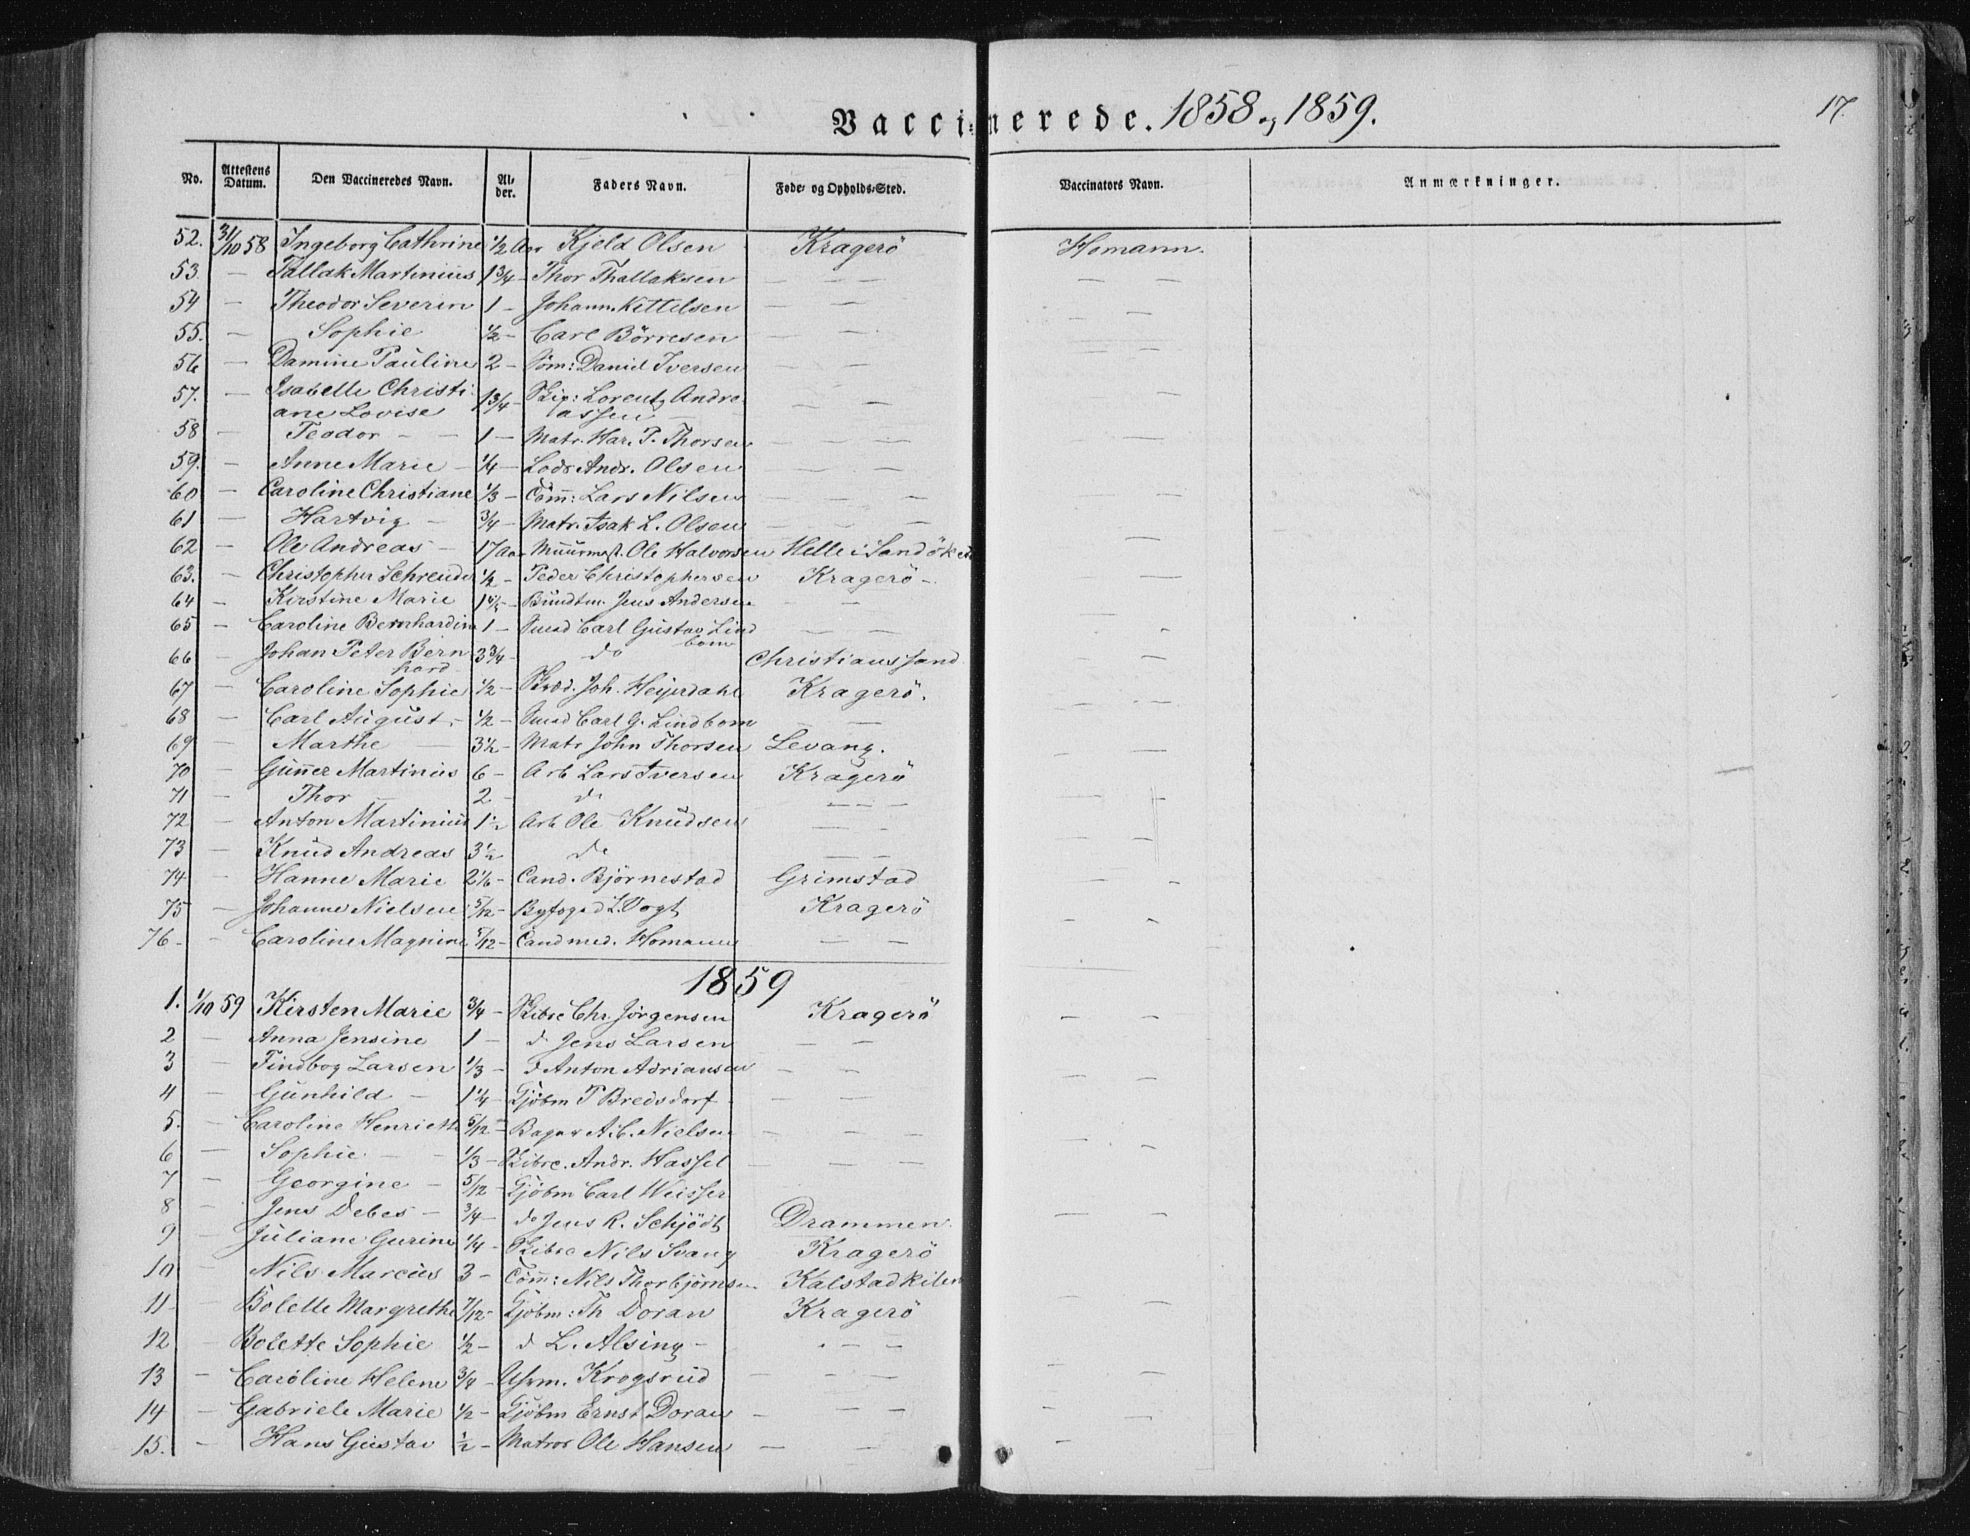 Vaccinerede. 1858 og 1859.
17.
No. Attestens Datum. Den Vaccineredes Navn. Alder. Faders Navn. Føde- og Opholds-Sted. Vaccinators Navn. Anmærkninger.
52. 31/10 58 Ingeborg Cathrine 1/2 Aar Kjeld Olsen Kragerö Homann.
53 — Tallak Martinius 1 3/4 — Thor Thallaksen — — — — —
54 — Theodor Severin 1 — Johann Kettelsen — — — — —
55. — Sophie 1/2 — Carl Börresen — — — —
56 — Damine Pauline 2 — Töm: Daniel Iversen — — — — —
57. — Isabelle Christi-
ane Lovise 1 3/4 — Skip: Lorentz Andre-
assen — — — — —
58 — Teodor — — 1 — Matr. Har. P. Thorsen — — — — —
59. — Anne Marie — 1/4 — Lods Andr. Olsen — — — — —
60 — Caroline Christiane 1/3 — Tömm: Lars Nilsen — — — — —
61 — Hartvig — 3/4 — Matr. Isak L. Olsen — — — — —
62 — Ole Andreas — 17 Aar Muurmest. Ole Halvorsen Helle i Sandöked — —
63. — Christopher Schreuder 1/2 — Peder Christophersen Kragerö — — —
64 — Kirstine Marie 1 — Bundtm. Jens Andersen — — — —
65 — Caroline Bernhardine 1 — Smed Carl Gustav Lind-
bom — — — —
66 — Johan Peter Bern-
hard 3 3/4 — do Christianssand — —
67 — Caroline Sophie 1/2 — Joh. Heijerdahl Kragerö. — —
68 — Carl August — 1/2 — Smed Carl G. Lindbom — — — —
69 — Marthe — 3 1/2 — Matr John Thorsen Levang. — —
70 — Gunner Martinius 6 — Arb Lars Iversen Kragerö — —
71 — Thor — 2 — do — — — — —
72 — Anton Martinius 1 1/2 Arb Ole Knudsen — — — —
73 — Knud Andreas 3 1/2 do — — — —
74 — Hanne Marie 2 1/6 — Cand. Bjørnestad Grimstad — —
75 — Johanne Nielsene 5/12 — Byfoged L. Vogt Kragerö — —
76 — Caroline Magnine 5/12 — Cand med. Homann — — — —
1859
1. 1/10 59 Kirsten Marie 3/4 — Skibsc Chr. Jörgensen Kragerö — —
2 — Anna Jensine 1 — do Jens Larsen — — — —
3 — Findbog Larsen 1/3 — d Anton Adriansen — — — —
4 — Gunhild — 1 1/4 — Kjöbm P Bredsdorf — — — — —
5. — Caroline Henriette 5/12 — Bager A. C. Nielsen — — — — —
6 — Sophie — — 1/3 — Skibsc. Andr. Hassel — — — — —
7 — Georgine — 5/12 — Kjöbm Carl Weisser
8 — Jens Debes — 3/4 — do Jens R. Schjödt Drammen. — —
9 — Juliane Gurine 1/4 — Skibsc Nils Svang Kragerö — —
10 — Nils Marcus 3 — Tömm: Nils Thorbjörnsen Kalstadkilen — —
11 — Bolette Margrethe 7/12 — Kjöbm: Th Doran Kragerö — —
12 — Bolette Sophie 1/2 — d L. Alsing — — — —
13 — Caroline Helene 3/4 — Uhrm. Krogsrud — — — — —
14 — Gabriele Marie 1/2 — Kjöbm Ernst Doran — — — — —
15. — Hans Gustav 1/2 — Matros Ole Hansen — — —